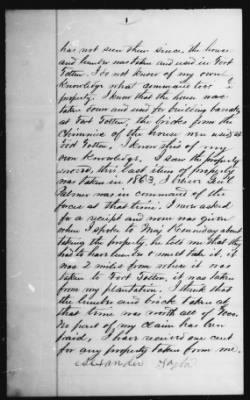 has not seen them since. the house
and lumber was taken and used in Fort
Totten. I do not know of my own
knowledge what commissary
property. I know that the house was
taken down and used for building barracks
at Fort Totten, the bricks from the
Chimnies of the house were used at
Fort Totten. I know this of my
own knowledge. I saw the property
this last item of property
was taken in 1863. I believe Genl.
Palmer was in command of the
force at that time. I never asked
for a receipt and none was given
when I spoke to Maj Kenniday about
taking the property, he told me that they
had to have lumber & must take it. it
was 2 miles from where it was
taken to Fort Totten, it was taken
from my plantation. I think that
the lumber and brick taken at
that time was worth all of
No part of my claim has been
paid, I have received one cent
for any property taken from me.
Alexander Taylor